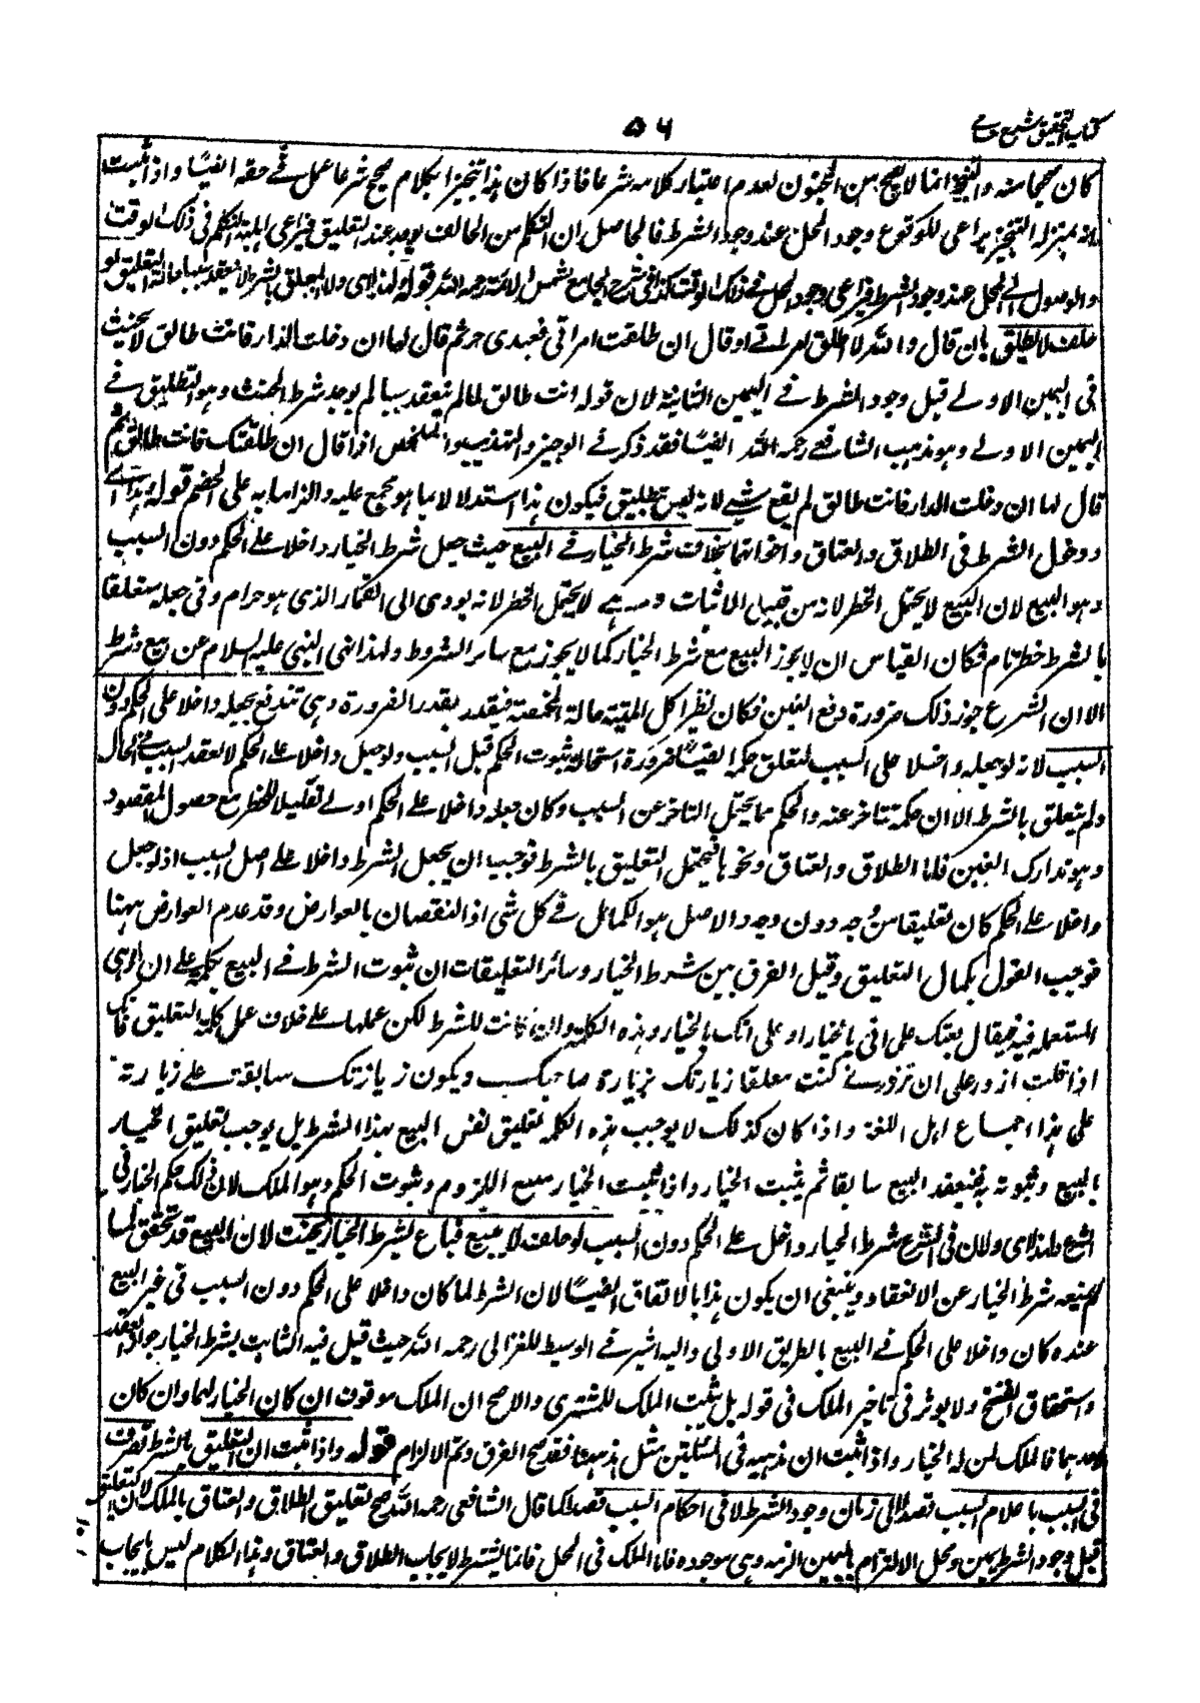 كتاب التحقيق شرح حسامى
٥٤
كان صحيحا منه والتنجيز انما لا يصح من المجنون لعدم اعتبار كلامه شرعا فاذا كان هذا تنجيزا بكلام صحيح شرعا عمل فى حقه ايضا واذا ثبت
انه بمنزلة التنجيز يراعى للوقوع وجود المحل عند وجود الشرط فالحاصل ان التكلم من الحالف يوجد عند التعليق فيراعى اهلية التكلم فى ذلك الوقت
والوصول الى المحل عند وجود الشرط فيراعى وجود المحل فى ذلك الوقت كذا فى شرح الجامع لشمس الائمة رحمه الله قوله ولهذا اى ولان المعلق بالشرط لا ينعقد سببا حالة التعليق لو
حلف لا يطلق بان قال والله لا اطلق امراتى او قال ان طلقت امراتى فعبدى حر ثم قال لها ان دخلت الدار فانت طالق لا يحنث
فى اليمين الاولى قبل وجود الشرط فى اليمين الثانية لان قوله انت طالق لما لم ينعقد سببا لم يوجد شرط الحنث وهو التطليق فى
اليمين الاولى وهو مذهب الشافعى رحمه الله ايضا فقد ذكر فى الوجيز والتهذيب والملخص اذا قال ان طلقتك فانت طالق ثم
قال لها ان دخلت الدار فانت طالق لم يقع شىء لانه ليس بتطليق فيكون هذا استدلالا بما هو مجمع عليه والزاما به على الخصم قوله وهذا اى
دخول الشرط فى الطلاق والعتاق واخواتهما بخلاف شرط الخيار فى البيع حيث جعل شرط الخيار داخلا على الحكم دون السبب
وهو البيع لان البيع لا يحتمل الخطر لانه من قبيل الاثبات وهى لا يحتمل الخطر لانه يودى الى القمار الذى هو حرام وفى جعله متعلقا
بالشرط خطر تام فكان القياس ان لا يجوز البيع مع شرط الخيار كما لا يجوز مع سائر الشروط ولهذا نهى النبى عليه السلام عن بيع وشرط
الا ان الشرع جوز ذلك ضرورة دفع الغبن فكان نظير اكل الميتة حالة المخمصة فيتقدر بقدر الضرورة وهى تندفع بجعله داخلا على الحكم دون
السبب لانه لو جعله داخلا على السبب لتعلق حكمه ايضا ضرورة استحالة ثبوت الحكم قبل السبب ولو جعل داخلا على الحكم لانعقد السبب فى الحال
ولم يتعلق بالشرط الا ان حكمه تتاخر عنه والحكم مما يحتمل التاخر عن السبب وكان جعله داخلا على الحكم اولى تقليلا للخطر مع حصول المقصود
وهو تدارك الغبن فاما الطلاق والعتاق ونحوهما فيحتمل التعليق بالشرط فوجب ان يجعل الشرط داخلا على اصل السبب اذ لو جعل
داخلا على الحكم كان تعليقا من وجه دون وجه والاصل هو الكمال فى كل شى اذ النقصان بالعوارض وقد عدم العوارض ههنا
فوجب القول بكمال التعليق وقيل الفرق بين شرط الخيار وسائر التعليقات ان ثبوت الشرط فى البيع بكلمة على ان اذ هى
المستعملة فيه فيقال بعتك على انى بالخيار او على انك بالخيار وهذه الكلمة وان كانت للشرط لكن عملها على خلاف عمل كلمة التعليق فانك
اذا قلت ازورك على ان تزورنى كنت معلقا زيارتك بزيارة صاحبك ويكون زيارتك سابقة على زيارته
على هذا اجماع اهل اللغة واذا كان كذلك لا يوجب هذه الكلمة تعليق نفس البيع بهذا الشرط بل يوجب تعليق الخيار
بالبيع وثبوته به فينعقد البيع سابقا ثم يثبت الخيار واذا ثبت الخيار يمنع اللزوم وثبوت الحكم وهو الملك لان ذلك حكم الخيار فى
الشرع ولهذا اى ولان فى الشرع شرط الخيار داخل على الحكم دون السبب لو حلف لا يبيع فباع بشرط الخيار يحنث لان البيع قد تحقق لما
لم يمنعه شرط الخيار عن الانعقاد وينبغى ان يكون هذا بالاتفاق ايضا لان الشرط لما كان داخلا على الحكم دون السبب فى غير البيع
عنده كان داخلا على الحكم فى البيع بالطريق الاولى واليه اشير فى الوسيط للغزالى رحمه الله حيث قيل فيه الثابت بشرط الخيار جواز العقد
واستحقاق الفسخ ولا يوثر فى تاخير الملك فى قوله بل يثبت الملك للمشترى والاصح ان الملك موقوف ان كان الخيار لهما وان كان
لاحدهما فالملك لمن له الخيار واذا ثبت ان مذهبه فى المسئلتين مثل مذهبنا فقد صح الفرق وتم الالزام قوله واذا ثبت ان التعليق بالشرط تصرف
فى السبب باعدام السبب قصدا الى زمان وجود الشرط لا فى احكام السبب قصدا كما قال الشافعى رحمه الله صح تعليق الطلاق والعتاق بالملك لان التعليق
قبل وجود الشرط يمين ومحل الالتزام باليمين الذمة وهى موجودة فاما الملك فى المحل فانما يشترط لايجاب الطلاق والعتاق وهذا الكلام ليس بايجاب